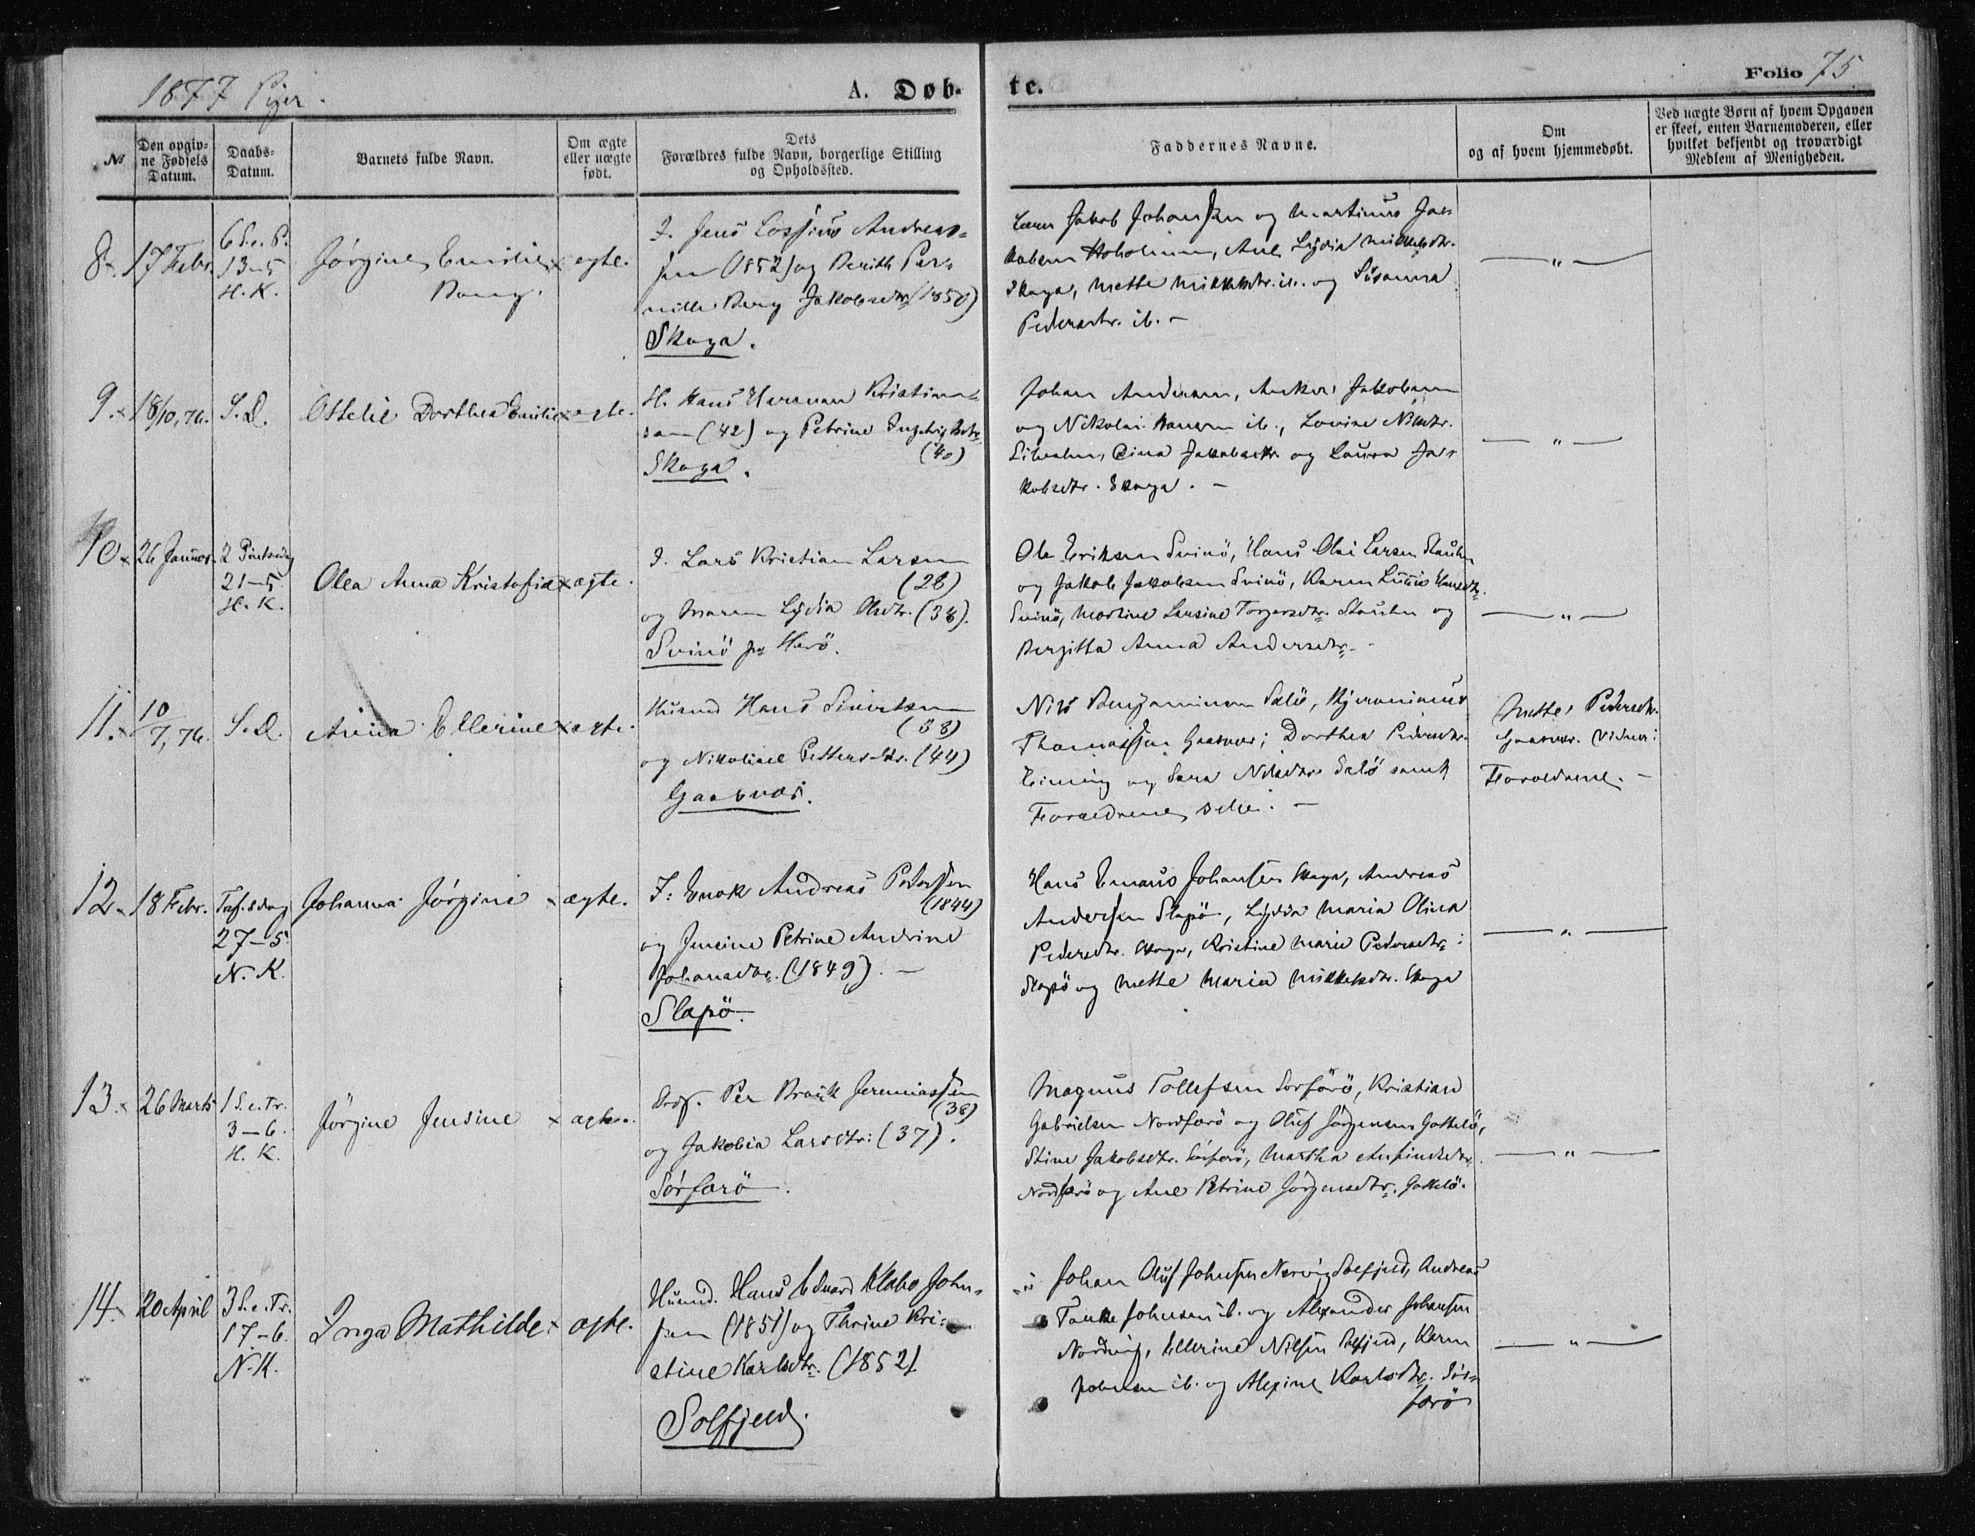 1877 Piger.
A. Døb-
te.
Folio 75
№
Den opgiv-
ne Fødsels
Datum.
Daabs-
Datum.
Barnets fulde Navn.
Om ægte
eller uægte
født.
Dets
Forældres fulde Navn, borgerlige Stilling
og Opholdssted.
Faddernes Navne.
Om
og af hvem hjemmedøbt.
Ved uægte Børn af hvem Opgaven
er skeet, enten Barnemoderen, eller
hvilket bekjendt og troværdigt
Medlem af Menigheden.
8. 17 Febr.
6 S. e. P.
13-5
H. K.
Jørgine Emilie
ægte.
I. Jens Lossius Andreas-
sen (1852) og Berith Per-
nille Berg Jakobsdtr. (1850)
Skaga.
Jakob Johanssen og Martinus Ja-
kobsen Hoholmen, Ane Lydia Mikkelsdtr.
Skaga, Mette Mikkelsdtr. ib. og Susanna
Pedersdtr. ib. —
— " —
9. 18/10, 76.
S. D.
Ottelie Dorthea Emilie
ægte.
H. Hans Herman Kristian-
sen (42) og Petrine
(40)
Skaga.
Johan Andersen, Anker Jakobsen
og Nikolai Hansen ib., Lovise Nilsdtr.
Lina Jakobsdtr. og Laura Ja-
kobsdtr. Skaga. —
— " —
10. 26 Januar.
2 Pintsedag
21-5.
H. K.
Olea Anna Kristofia
ægte.
I. Lars Kristian Larsen
(28)
og Maren Lydia Olsdtr. (38).
Svinö pr Herö.
Ole Eriksen Svinö, Hans Olai Larsen Staulen
og Jakob Jakobsen Svinö, Karen Hansdtr.
Svinö, Martine Larsine Torgersdtr. Staulen og
Bergitta Anna Andersdtr. —
— " —
11. 10/7, 76.
S. D.
Anna Ellerine
ægte.
Husmd Hans Sivertsen
(38)
og Nikoline Pettersdtr. (44)
Gaasvær.
Nils Benjaminsen Sklö, Hjeronimus
Thomassen Gaasvær; Dorthea Pedersdtr.
og Sara Nilsdtr. Sklö samt
Forældrene selv. —
Mette Pedersdtr.
Gaasvær. Vidner:
Forældrene. —
12. 18 Febr.
Tref. sdag
27-5
N. K.
Johanna Jørgine
ægte.
I. Enok Andreas Pederssen
(1844)
og Jensine Petrine Andrine
Johansdtr. (1849). —
Slapö.
Hans Emaus Johansen Skaga, Andreas
Anderssen Slapö, Lydia Maria Olina
Pedersdtr. Skaga, Kristine Marie Pedersdtr.
Slapö og Mette Maria Mikkelsdtr. Skaga
— " —
13. 26 Marts
1 S. e. Tr.
3-6.
H. K.
Jørgine Jensine
ægte.
Per Brorik Jeremiassen
(38)
og Jakobia Larsdtr. (37).
Sörfarö.
Magnus Tollefsen Sörfarö, Kristian
Gabrielsen Nordfarö og Oluf Jørgensen Gakkelö,
Stine Jakobsdtr. Sörfarö, Martha Anfindsdtr.
Nordfarö og Ane Petrine Jørgensdtr. Gakkelö.
— " —
14. 20 April
3 S. e. Tr.
17-6.
N. K.
Inga Mathilde
ægte.
Husmd. Hans Edvard Klabo John-
sen (1851) og Thrine Kri-
stine Karlsdtr. (1852)
Solfjeld.
Johan Oluf Johnsen Solfjeld, Andreas
Tanke Johnsen ib. og Alexander Johansen
Nordvig, Ellerine Nilsen Solfjeld, Karen
Johnsen ib. og Alexine Karlsdtr. Sör-
farö
— " —